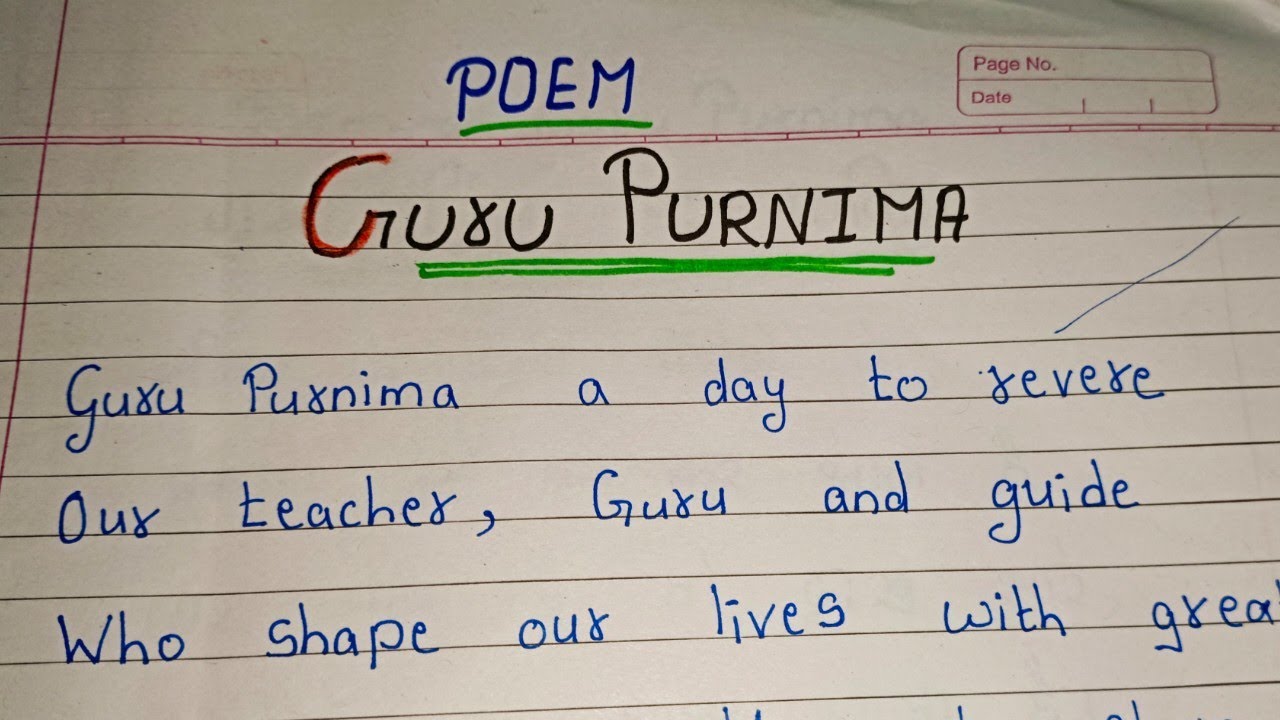 POEM
Page No.
Date
Guru PURNIMA
Guru Purnima a day to revere
Our teacher, Guru and guide
Who shape our lives with great